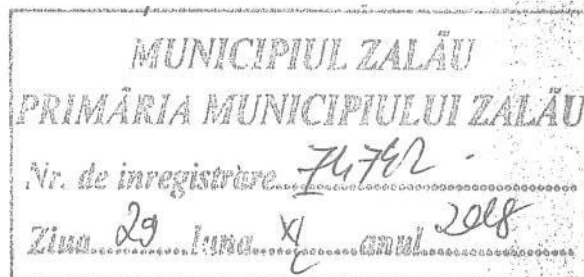 MUNICIPIUL ZALĂU
PRIMĂRIA MUNICIPIULUI ZALĂU
Nr. de inregistrare 74742
Ziua 29 luna XI anul 2018